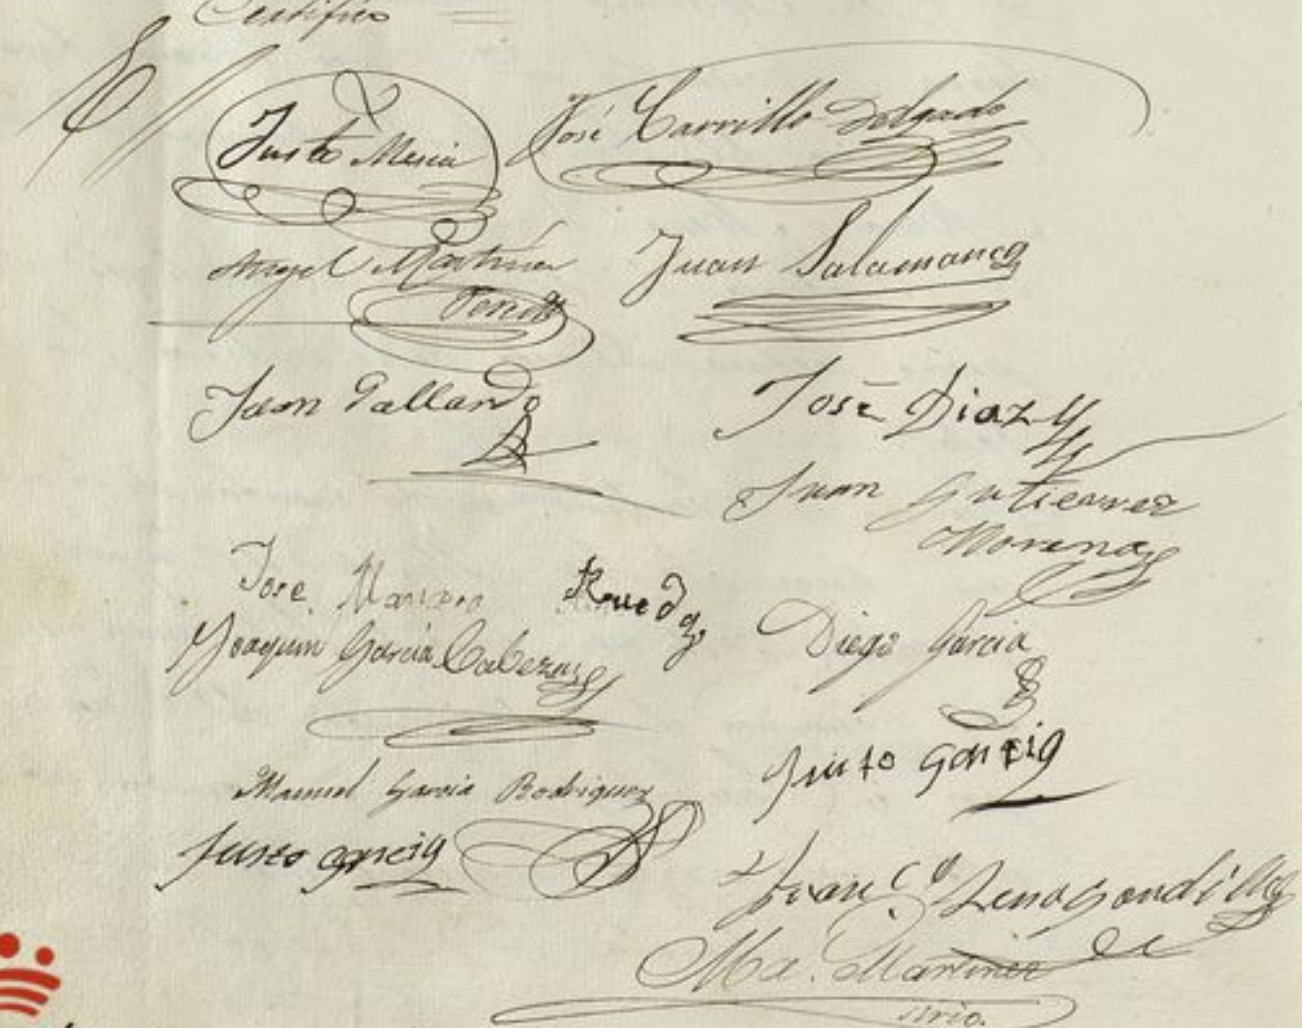 Certifico
Justo Mesia José Carrillo Delgado
Angel Martinez Juan Salamanca
Juan Gallardo José Diaz
Juan Gutierrez
Moreno
Jose Marzero Rueda
Joaquin Garcia Cabezas Diego Garcia
Manuel Garcia Rodriguez Justo Garcia
Justo Garcia
Franco
Ma. Martinez
Srio.